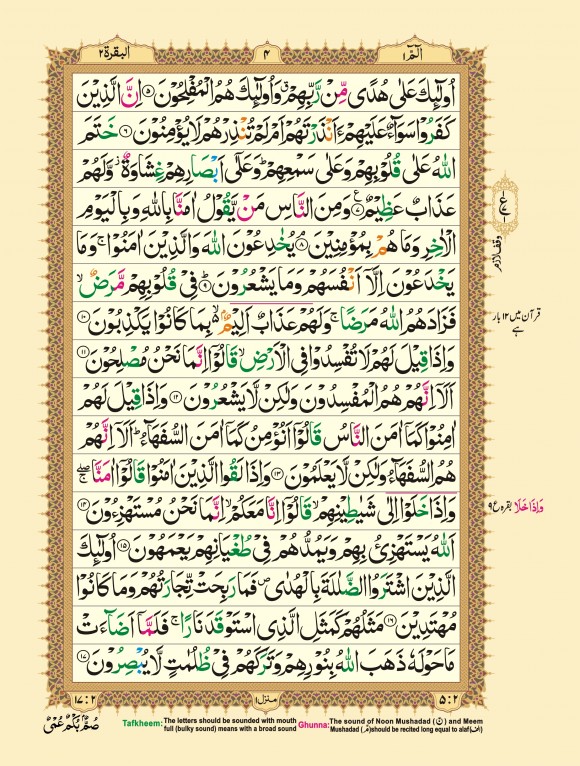 الٓمّٓ ١
٤
البقرة ٢
اُولٰٓئِكَ عَلٰى هُدًى مِّنْ رَّبِّهِمْ ۙ وَاُولٰٓئِكَ هُمُ الْمُفْلِحُوْنَ ۝۵ اِنَّ الَّذِيْنَ
كَفَرُوْا سَوَآءٌ عَلَيْهِمْ ءَاَنْذَرْتَهُمْ اَمْ لَمْ تُنْذِرْهُمْ لَا يُؤْمِنُوْنَ ۝۶ خَتَمَ
اللّٰهُ عَلٰى قُلُوْبِهِمْ وَعَلٰى سَمْعِهِمْ ؕ وَعَلٰٓى اَبْصَارِهِمْ غِشَاوَةٌ ؗ وَّلَهُمْ
عَذَابٌ عَظِيْمٌ ۝۷ ع وَمِنَ النَّاسِ مَنْ يَّقُوْلُ اٰمَنَّا بِاللّٰهِ وَبِالْيَوْمِ
الْاٰخِرِ وَمَا هُمْ بِمُؤْمِنِيْنَ ۘ۝۸ يُخٰدِعُوْنَ اللّٰهَ وَالَّذِيْنَ اٰمَنُوْا ۚ وَمَا
وقف لازم
يَخْدَعُوْنَ اِلَّاۤ اَنْفُسَهُمْ وَمَا يَشْعُرُوْنَ ؕ۝۹ فِىْ قُلُوْبِهِمْ مَّرَضٌ ۙ
فَزَادَهُمُ اللّٰهُ مَرَضًا ۚ وَلَهُمْ عَذَابٌ اَلِيْمٌۢ ۙ بِمَا كَانُوْا يَكْذِبُوْنَ ۝۱۰
قرآن میں ۱۲ بار
ہے
وَاِذَا قِيْلَ لَهُمْ لَا تُفْسِدُوْا فِى الْاَرْضِ ۙ قَالُوْٓا اِنَّمَا نَحْنُ مُصْلِحُوْنَ ۝۱۱
اَلَاۤ اِنَّهُمْ هُمُ الْمُفْسِدُوْنَ وَلٰكِنْ لَّا يَشْعُرُوْنَ ۝۱۲ وَاِذَا قِيْلَ لَهُمْ
اٰمِنُوْا كَمَاۤ اٰمَنَ النَّاسُ قَالُوْٓا اَنُؤْمِنُ كَمَاۤ اٰمَنَ السُّفَهَآءُ ؕ اَلَاۤ اِنَّهُمْ
هُمُ السُّفَهَآءُ وَلٰكِنْ لَّا يَعْلَمُوْنَ ۝۱۳ وَاِذَا لَقُوا الَّذِيْنَ اٰمَنُوْا قَالُوْٓا اٰمَنَّا ۚۖ
وَاِذَا خَلَوْا اِلٰى شَيٰطِيْنِهِمْ ۙ قَالُوْٓا اِنَّا مَعَكُمْ ۙ اِنَّمَا نَحْنُ مُسْتَهْزِءُوْنَ ۝۱۴
وَاِذَا خَلَا بقرہ ع ۹
اَللّٰهُ يَسْتَهْزِئُ بِهِمْ وَيَمُدُّهُمْ فِىْ طُغْيَانِهِمْ يَعْمَهُوْنَ ۝۱۵ اُولٰٓئِكَ
الَّذِيْنَ اشْتَرَوُا الضَّلٰلَةَ بِالْهُدٰى ۪ فَمَا رَبِحَتْ تِّجَارَتُهُمْ وَمَا كَانُوْا
مُهْتَدِيْنَ ۝۱۶ مَثَلُهُمْ كَمَثَلِ الَّذِى اسْتَوْقَدَ نَارًا ۚ فَلَمَّاۤ اَضَآءَتْ
مَا حَوْلَهٗ ذَهَبَ اللّٰهُ بِنُوْرِهِمْ وَتَرَكَهُمْ فِىْ ظُلُمٰتٍ لَّا يُبْصِرُوْنَ ۝۱۷
۵ : ۲
منزل ۱
۱۷ : ۲
صُمٌّۢ بُكْمٌ عُمْىٌ
Tafkheem: The letters should be sounded with mouth full (bulky sound) means with a broad sound
Ghunna: The sound of Noon Mushadad (نّ) and Meem Mushadad (مّ) should be recited long equal to alaf